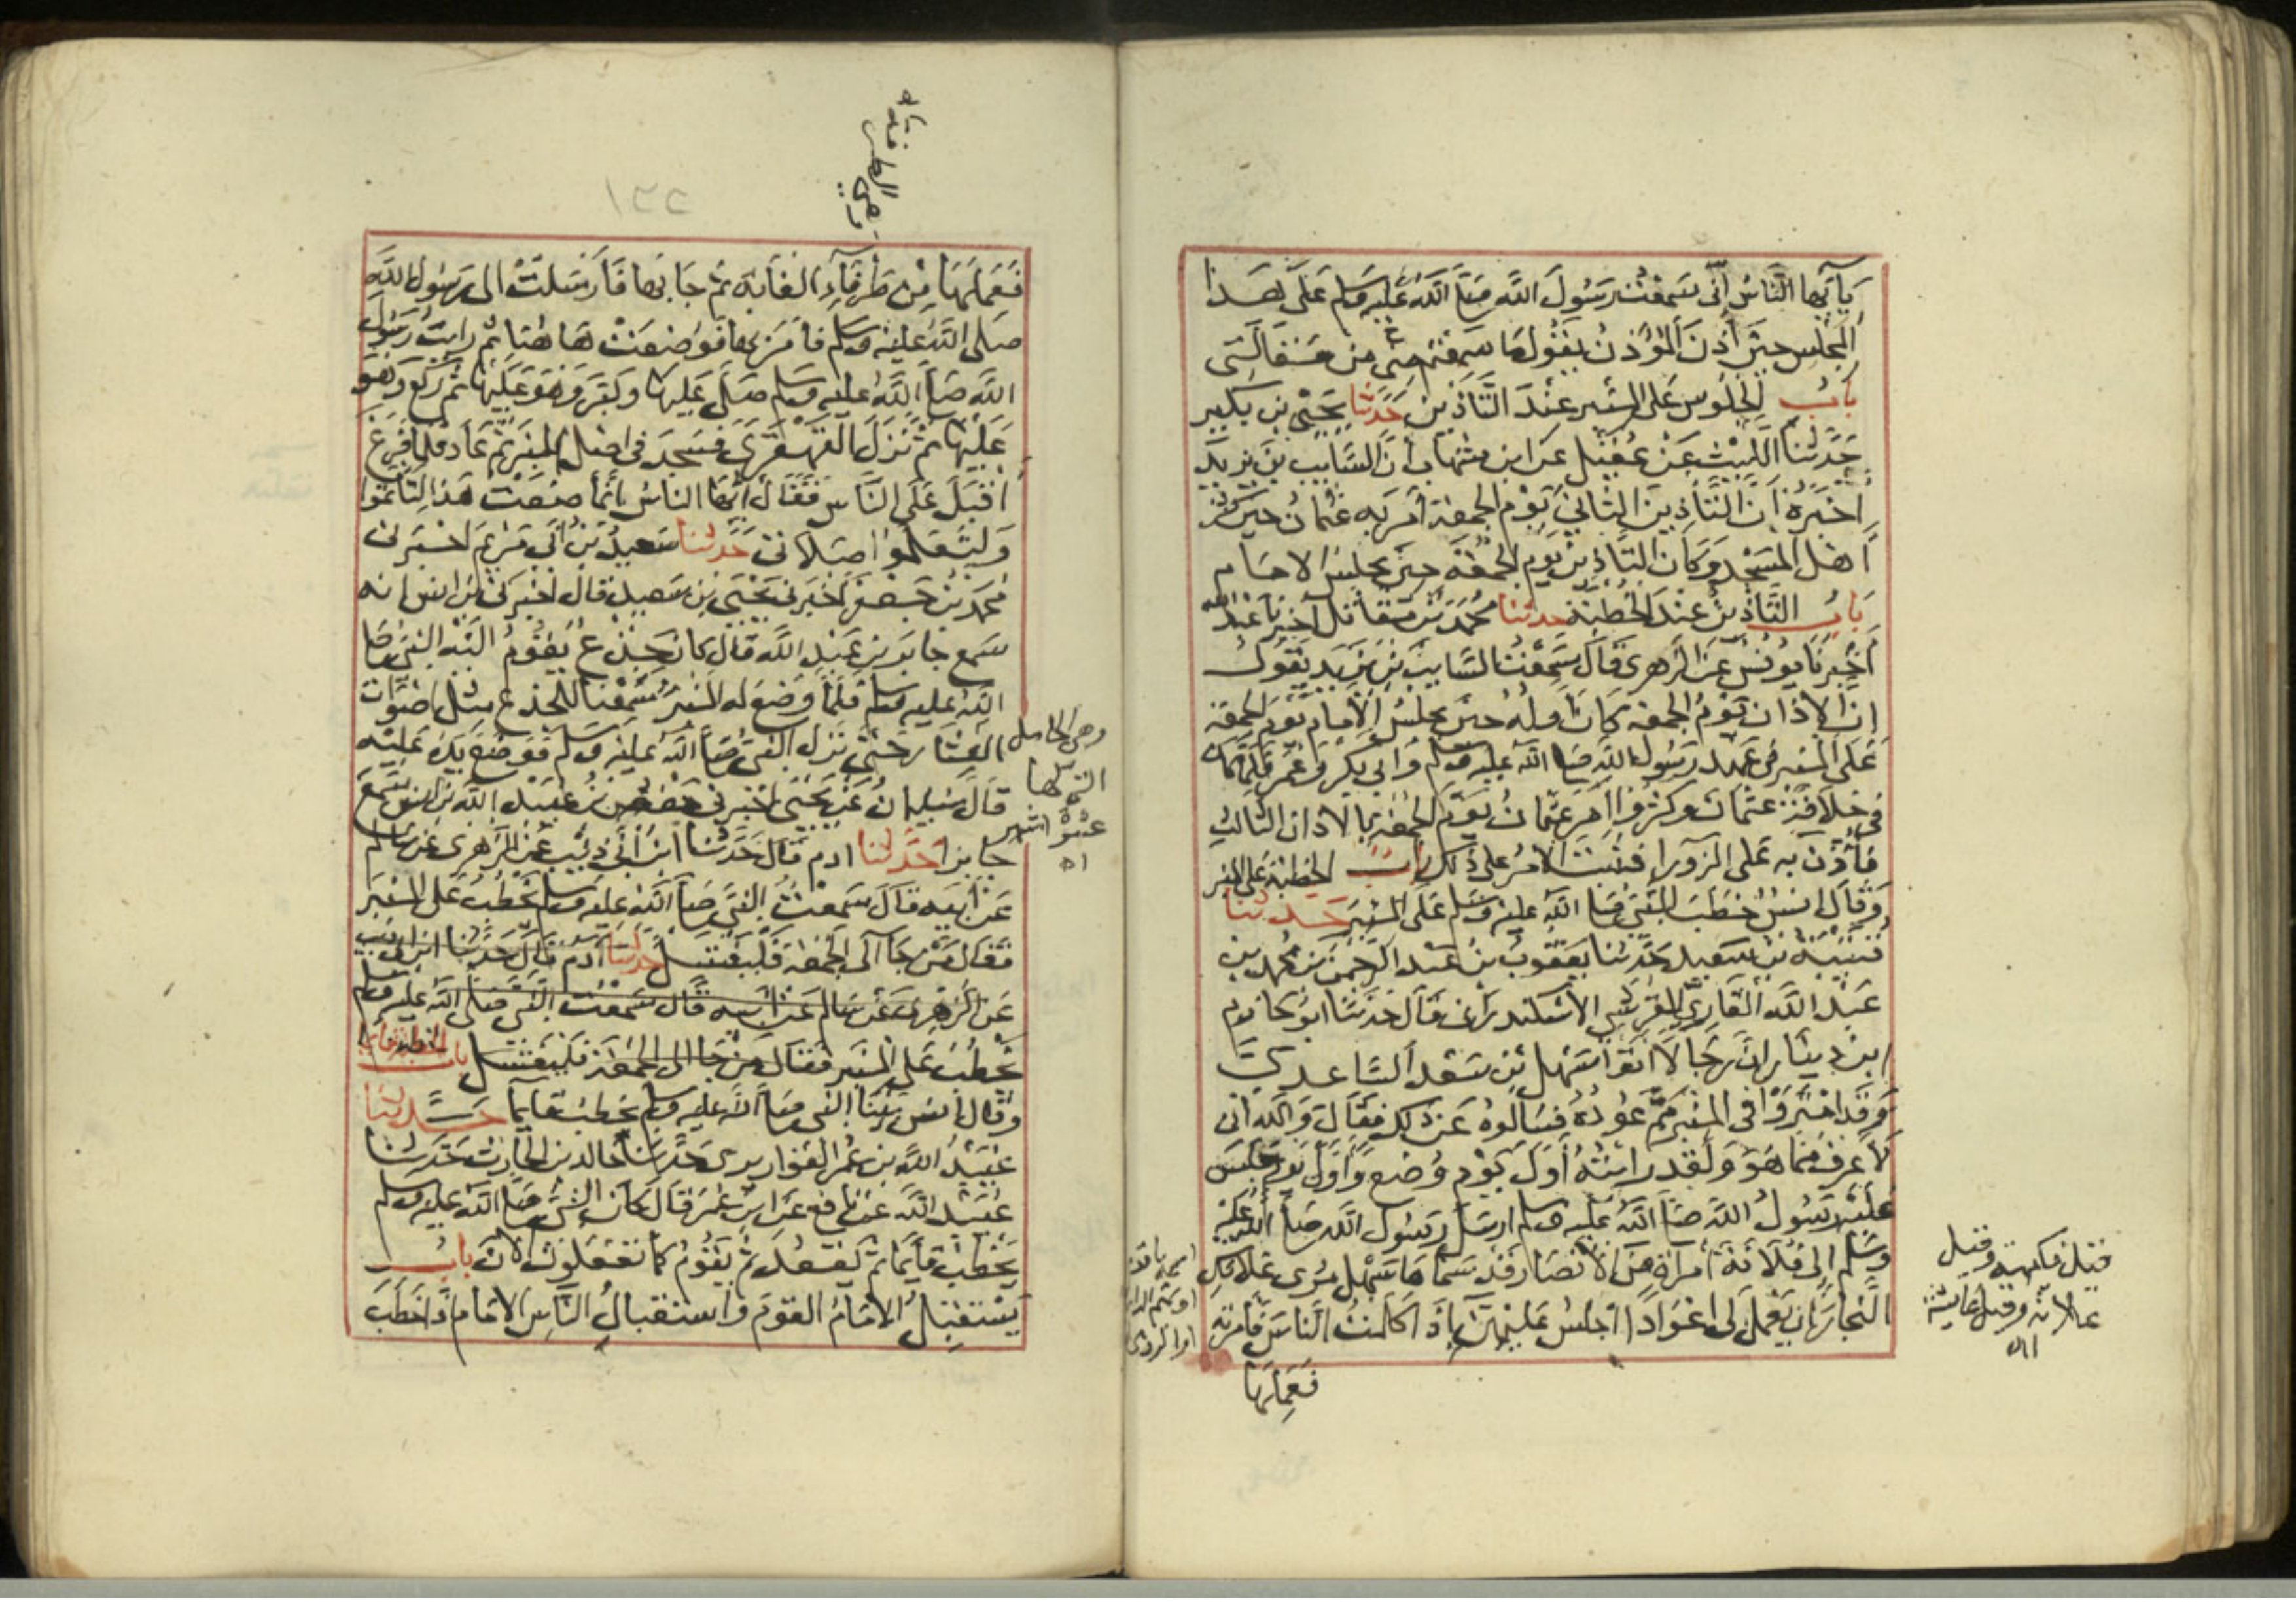 يا أيها الناس إني سمعت رسول الله صلى الله عليه وسلم على هذا
المجلس حين أذن المؤذن يقول ما سمعتم مني من مقالتي
باب الجلوس على المنبر عند التأذين حدثنا يحيى بن بكير
حدثنا الليث عن عقيل عن ابن شهاب أن السايب بن يزيد
أخبره أن التأذين الثاني يوم الجمعة أمر به عثمان حين كثر
أهل المسجد وكان التأذين يوم الجمعة حين يجلس الامام
باب التأذين عند الخطبة حدثنا محمد بن مقاتل أخبرنا عبد الله
أخبرنا يونس عن الزهري قال سمعت السايب بن يزيد يقول
ان الاذان يوم الجمعة كان أوله حين يجلس الامام يوم الجمعة
على المنبر في عهد رسول الله صلى الله عليه وسلم وابي بكر وعمر فلما كان
في خلافة عثمان وكثروا امر عثمان يوم الجمعة بالاذان الثالث
فأذن به على الزورا فثبت الامر على ذلك باب الخطبة على المنبر
وقال انس خطب النبي صلى الله عليه وسلم على المنبر حدثنا
قتيبة بن سعيد حدثنا يعقوب بن عبد الرحمن بن محمد بن
عبد الله القاري القرشي الاسكندراني قال حدثنا ابو حازم
ابن دينار ان رجالا اتوا سهل بن سعد الساعدي
وقد امتروا في المنبر مم عوده فسألوه عن ذلك فقال والله اني
لأعرف مما هو ولقد رايته أول يوم وضع وأول يوم جلس
عليه رسول الله صلى الله عليه وسلم ارسل رسول الله صلى الله عليه
وسلم الى فلانة امرأة من الانصار قد سماها سهل مري غلامك
النجار ان يعمل لي اعوادا اجلس عليهن إذا كلمت الناس فأمرته
فعملها
قيل فكيهة وقيل
علاثة وقيل عايشة
اه
فعملها من طرفاء الغابة ثم جا بها فأرسلت الى رسول الله
صلى الله عليه وسلم فأمر بها فوضعت هاهنا ثم رايت رسول
الله صلى الله عليه وسلم صلى عليها وكبر وهو عليها ثم ركع وهو
عليها ثم نزل القهقرى فسجد في اصل المنبر ثم عاد فلما فرغ
أقبل على الناس فقال أيها الناس إنما صنعت هذا لتأتموا
ولتعلموا صلاتي حدثنا سعيد بن أبي مريم اخبرنا
محمد بن جعفر أخبرني يحيى بن سعيد قال أخبرني ابن انس انه
سمع جابر بن عبد الله قال كان جذع يقوم اليه النبي صلى
الله عليه وسلم فلما وضع له المنبر سمعنا للجذع مثل اصوات
العشار حتى نزل النبي صلى الله عليه وسلم فوضع يده عليه
قال سليمان عن يحيى اخبرني حفص بن عبيد الله بن انس سمع
جابرا حدثنا ادم قال حدثنا ابن أبي ذئب عن الزهري عن سالم
عن أبيه قال سمعت النبي صلى الله عليه وسلم يخطب على المنبر
فقال من جا الى الجمعة فليغتسل حدثنا آدم قال حدثنا ابن ابي ذئب
عن الزهري عن سالم عن ابيه قال سمعت النبي صلى الله عليه وسلم
يخطب على المنبر فقال من جا الى الجمعة فليغتسل باب الخطبة قايما
وقال انس بينا النبي صلى الله عليه وسلم يخطب قايما حدثنا
عبيد الله بن عمر القواريري حدثنا خالد بن الحارث حدثنا
عبيد الله عن نافع عن ابن عمر قال كان النبي صلى الله عليه وسلم
يخطب قايما ثم يقعد ثم يقوم كما تفعلون الان باب
يستقبل الامام القوم واستقبال الناس الامام إذا خطب
وهي الحامل
التي لها
عشرة اشهر
اه
١٢٢